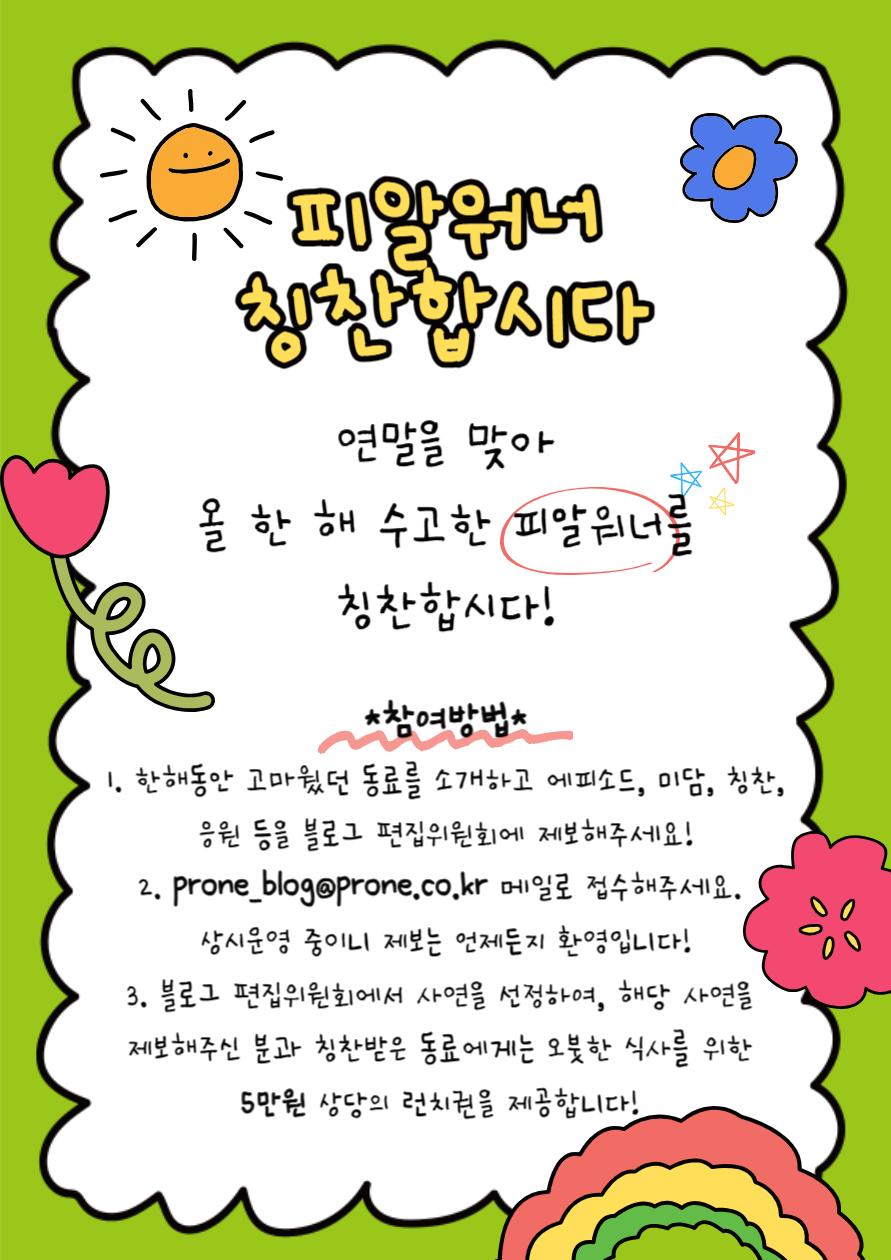 피알워너
칭찬합시다
연말을 맞아
올 한 해 수고한 피알워너를
칭찬합시다!
*참여방법*
1. 한해동안 고마웠던 동료를 소개하고 에피소드, 미담, 칭찬,
응원 등을 블로그 편집위원회에 제보해주세요!
2. prone_blog@prone.co.kr 메일로 접수해주세요.
상시운영 중이니 제보는 언제든지 환영입니다!
3. 블로그 편집위원회에서 사연을 선정하여, 해당 사연을
제보해주신 분과 칭찬받은 동료에게는 오붓한 식사를 위한
5만원 상당의 런치권을 제공합니다!